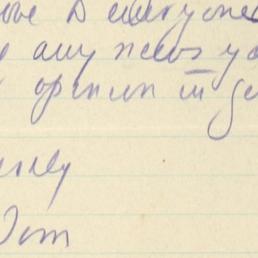 to everyone
any news yo
opinion in ge
Tom